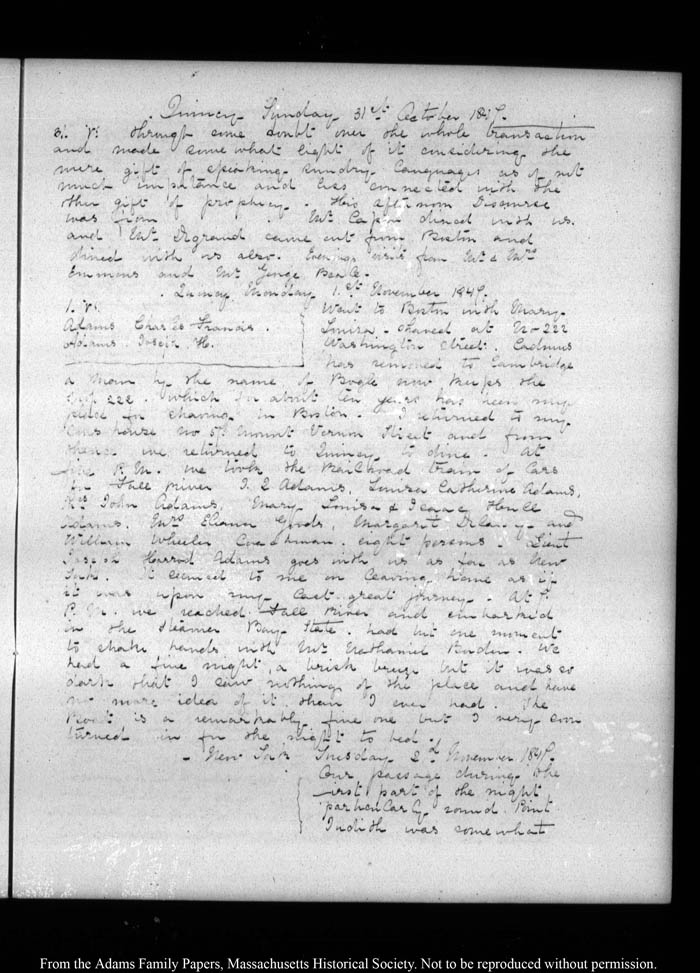 Quincy Sunday 31st October 1847.
31. V: through some doubt over the whole transaction
and made somewhat light of it considering the
mere gift of speaking sundry languages as of not
much importance and less connected with the
other gift of prophecy. His afternoon Discourse
was from Mr. Capen dined with us.
and Mr. Degrand came out from Boston and
dined with us also. Evening visit from Mr. & Mrs
Emmons and Mr. George Beale.
Quincy Monday 1.st November 1847.
1. V:
Adams Charles Francis.
Adams. Joseph H.
Went to Boston with Mary
Louisa - shaved at No 222
Washington Street. Cadmus
has removed to Cambridge
a man by the name of Bogle now keeps the
222. which for about ten years has been my
place for shaving in Boston. I returned to my
house No 57 Mount Vernon Street and from
thence we returned to Quincy to dine. At
five P.M. we took the Railroad train of Cars
for Fall river J. Q Adams, Louisa Catherine Adams,
Mrs John Adams, Mary Louisa & Isaac Hull
Adams. Mrs Eleanor Goods, Margaret Delany and
William Wheeler Coachman. eight persons. Lieut
Joseph Harrod Adams goes with us as far as New
York. It seemed to me on leaving home as if
it was upon my last great journey. At
P.M. we reached Fall River and embarked
in the Steamer Bay State. had but one moment
to shake hands with Mr Nathaniel Borden. We
had a fine night, a brisk breeze but it was so
dark that I saw nothing of the place and have
no more idea of it than I ever had. The
Boat is a remarkably fine one but I very soon
turned in for the night to bed.
New York Tuesday 2d November 1847.
Our passage during the
first part of the night
particularly round Point
Judith was somewhat
From the Adams Family Papers, Massachusetts Historical Society. Not to be reproduced without permission.